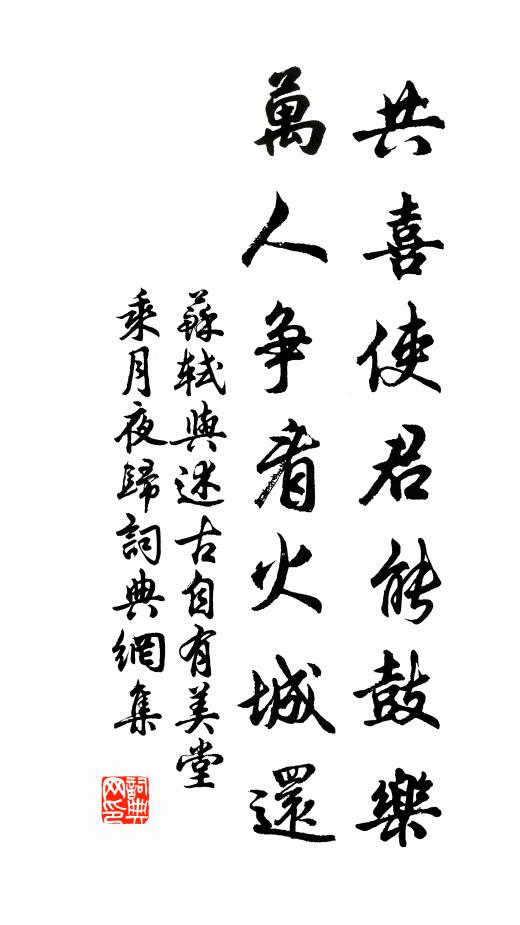 共喜使君能鼓樂
萬人爭看火城還
蘇軾與述古自有美堂
乘月夜歸詞典網集
詞典
网印